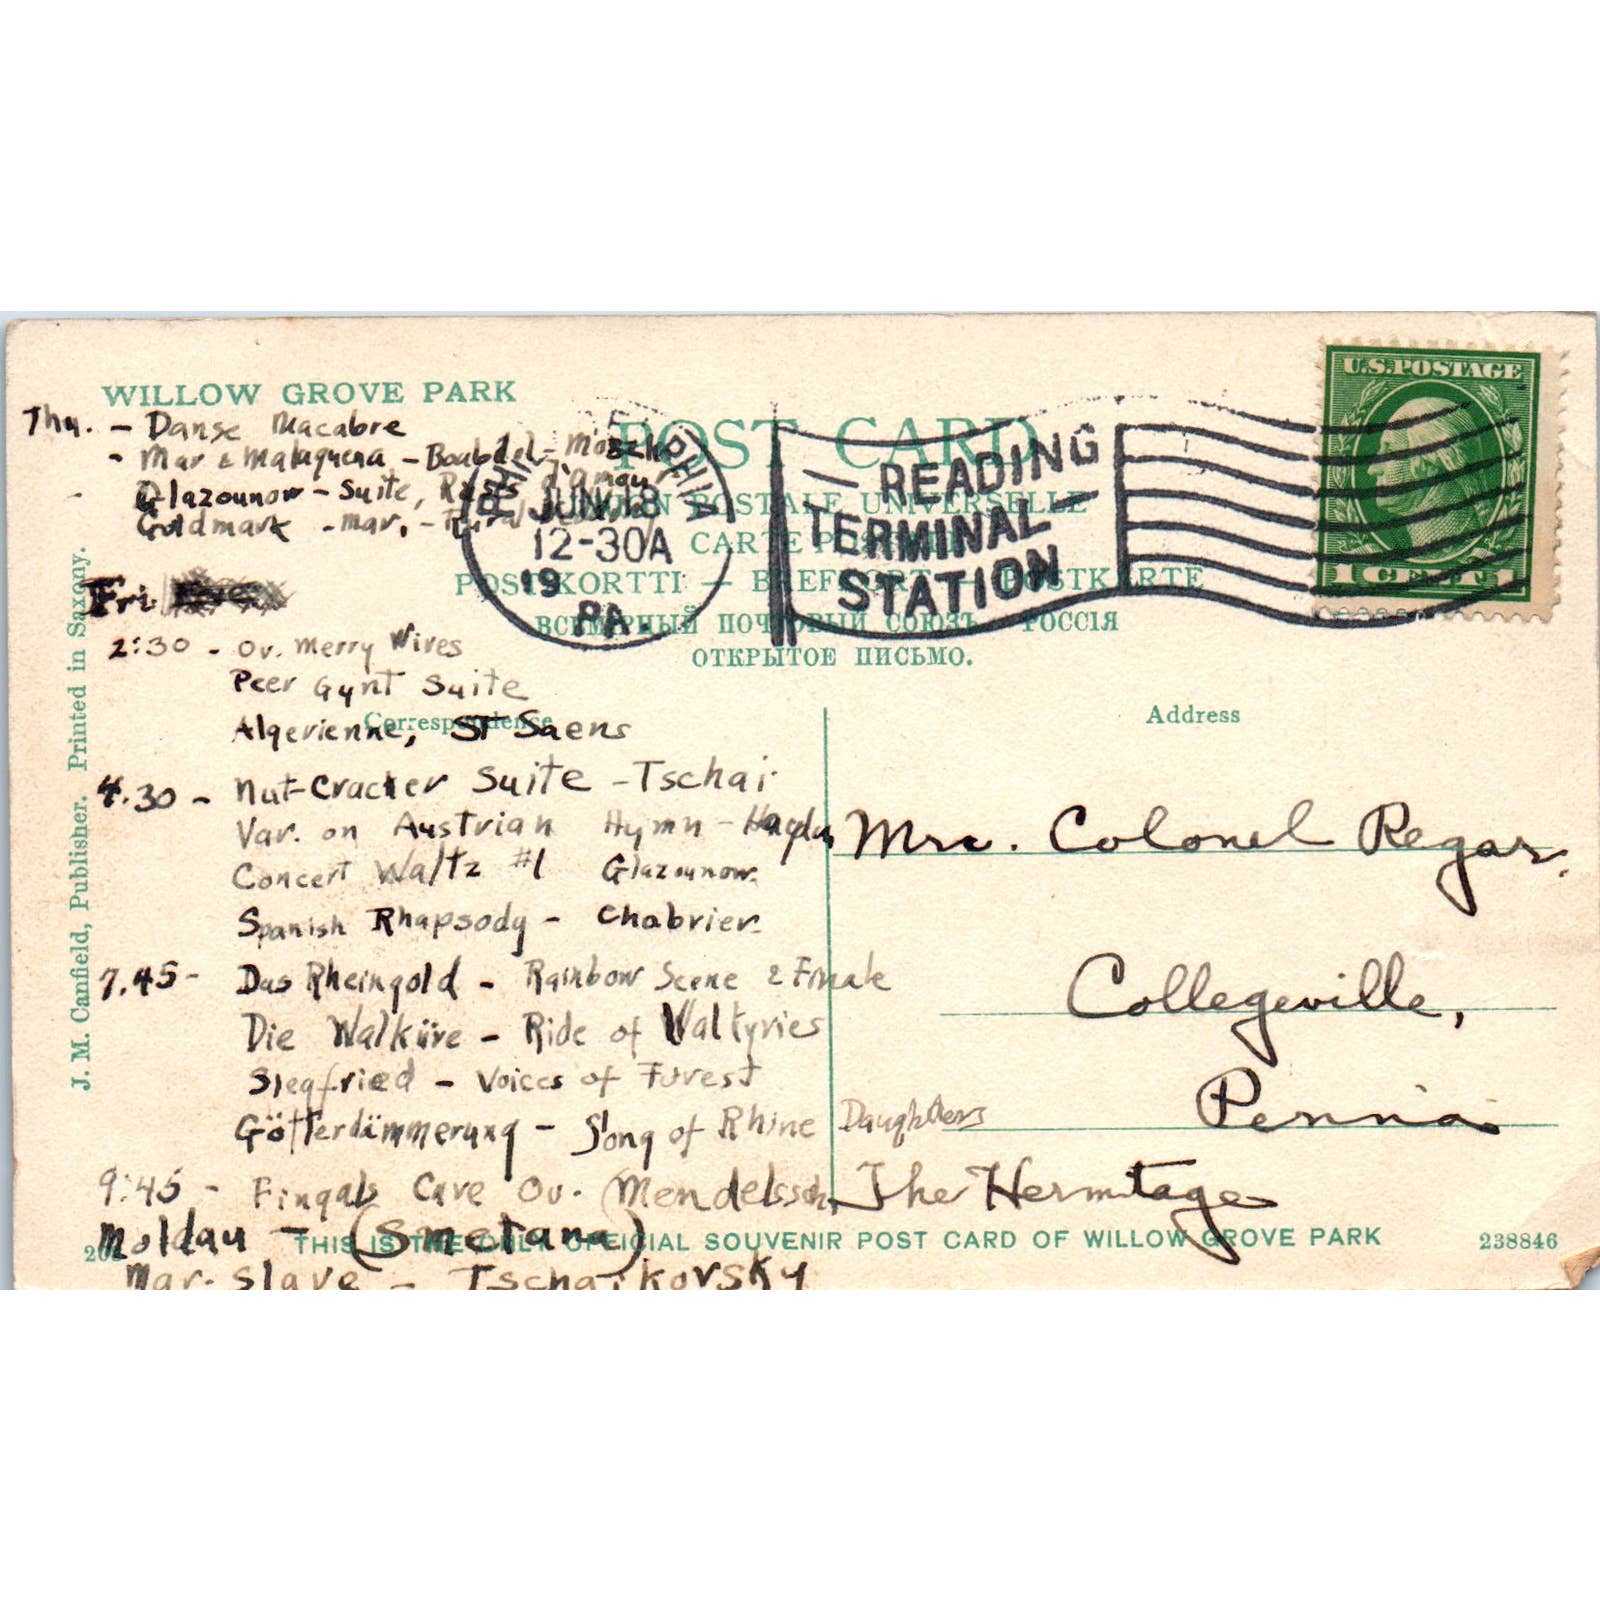 WILLOW GROVE PARK
POST CARD
UNION POSTALE UNIVERSELLE
CARTE POSTALE
POSTIKORTTI — BREFKORT — POSTKARTE
ВСЕМІРНЫЙ ПОЧТОВЫЙ СОЮЗЪ РОССІЯ
ОТКРЫТОЕ ПИСЬМО.
PHILADELPHIA
JUN 18
12-30A
19
PA.
READING
TERMINAL
STATION
U.S. POSTAGE
1 CENT 1
Thu. - Danse Macabre
- Mar & Malaguena - Boabdel - Moszko
Glazounow - Suite, Ruses d'amour
Goldmark - Mar. - Rural
Fri.
2:30 - Ov. Merry Wives
Peer Gynt Suite
Correspondence
Algerienne, St Saens
4.30 - Nut-Cracker Suite - Tschai.
Var. on Austrian Hymn - Haydn
Concert Waltz #1 Glazounow.
Spanish Rhapsody - Chabrier.
7.45 - Das Rheingold - Rainbow Scene & Finale
Die Walküre - Ride of Valkyries
Siegfried - Voices of Forest
Götterdämmerung - Song of Rhine Daughters
9:45 - Fingals Cave Ov. (Mendelssohn
Moldau - (Smetana)
Mar. Slave - Tschaikovsky
Address
Mrs. Colonel Regar.
Collegeville,
Penn'a
The Hermitage
THIS IS THE ONLY OFFICIAL SOUVENIR POST CARD OF WILLOW GROVE PARK
238846
J. M. Canfield, Publisher. Printed in Saxony.